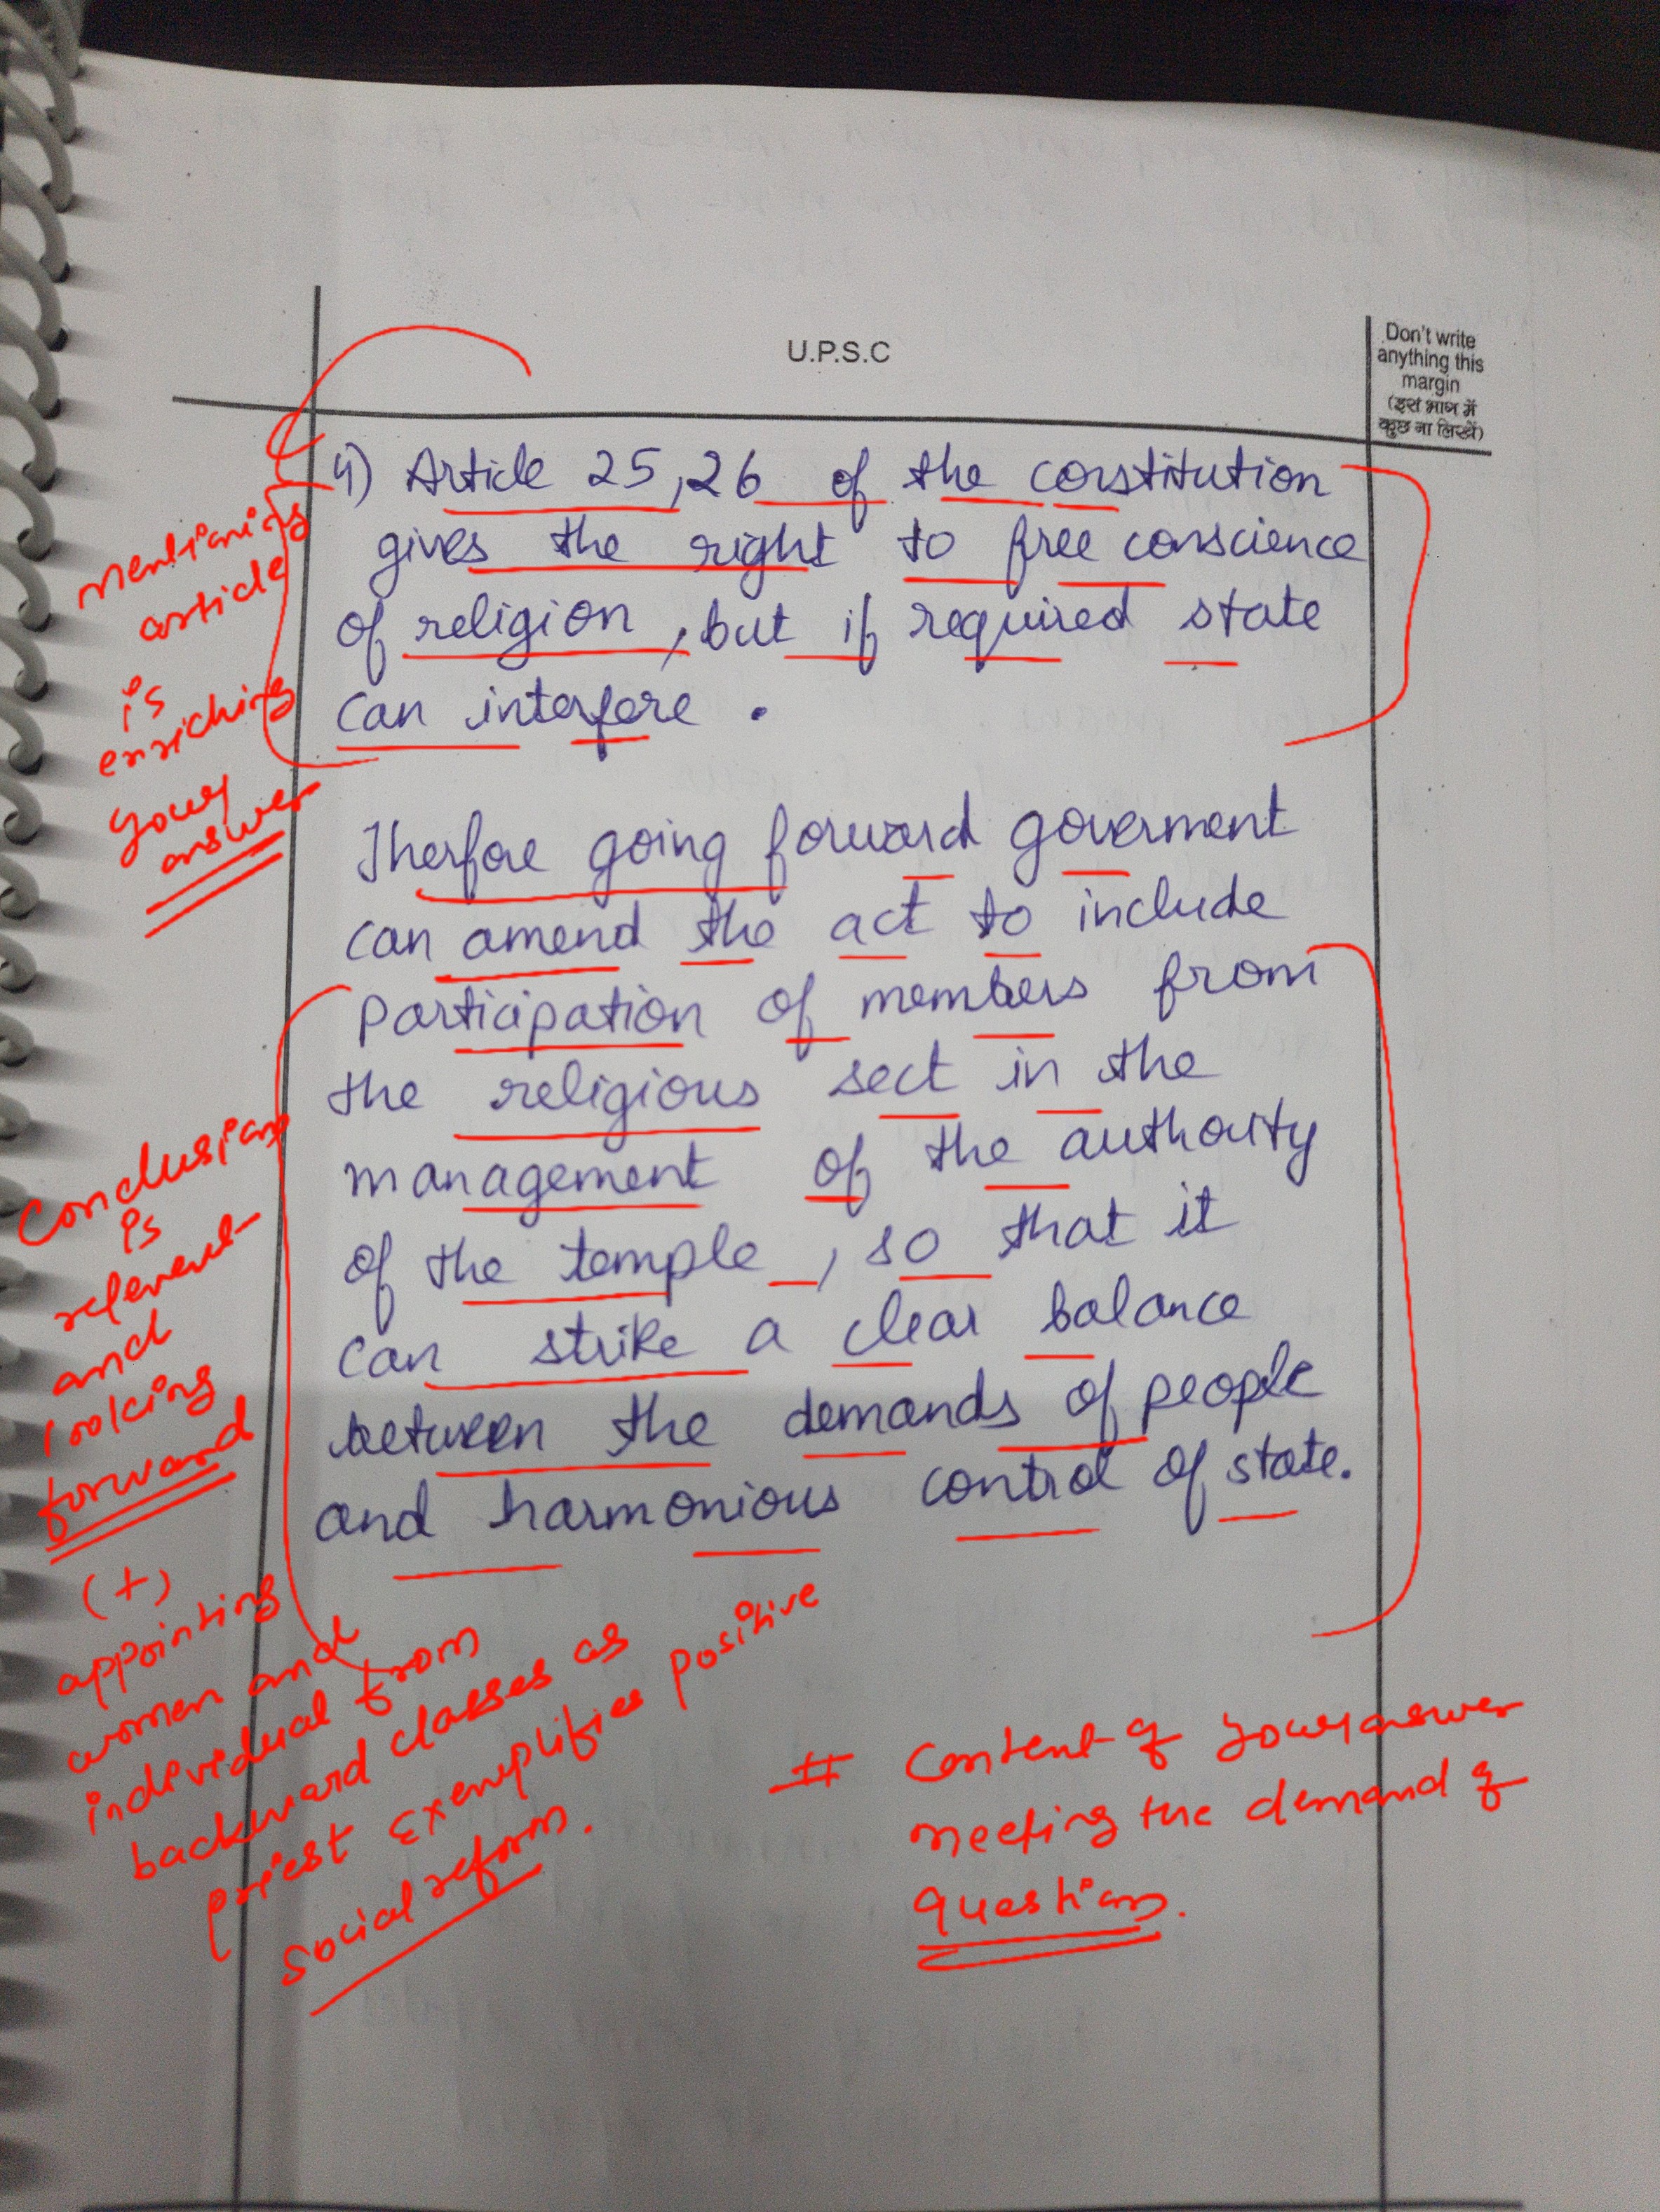 U.P.S.C
Don't write
anything this
margin
(इस भाग में
कुछ ना लिखें)
4) Article 25,26 of the constitution
gives the right to free conscience
of religion, but if required state
can interfere .
Therfore going forward goverment
can amend the act to include
participation of members from
the religious sect in the
management of the authority
of the temple , so that it
can strike a clear balance
between the demands of people
and harmonious control of state.
mentioning
article
is
enriching
your
answer
Conclusion
is
relevent
and
looking
forward
(+)
appointing
women and
individual from
backward classes as
priest exemplifies positive
social reform.
# Content of your answer
meeting the demand of
question.